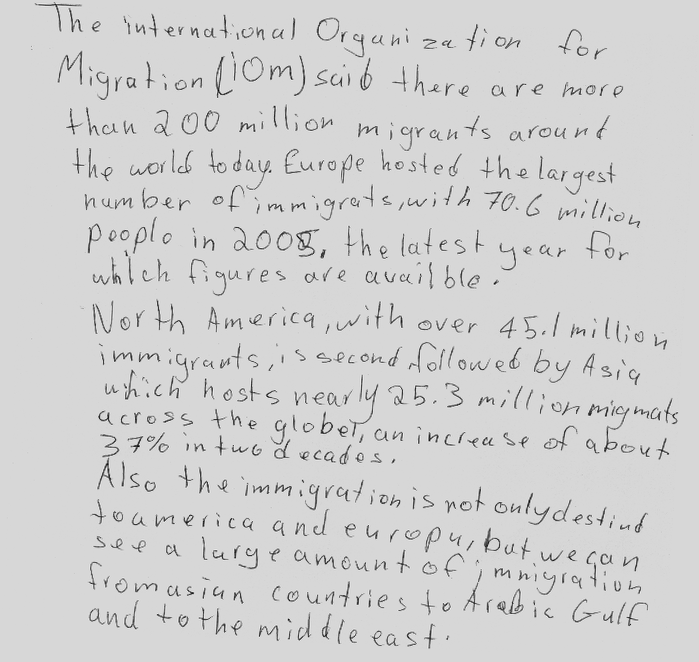 The international Organization for
Migration (iOm) said there are more
than 200 million migrants around
the world today. Europe hosted the largest
number of immigrats, with 70.6 million
people in 2005, the latest year for
which figures are availble.
North America, with over 45.1 million
immigrants, is second, followed by Asia
which hosts nearly 25.3 million migrnats
across the globet, an increase of about
37% in two decades.
Also the immigration is not only destind
to america and europu, but we can
see a large amount of immigration
from asian countries to Arabic Gulf
and to the middle east.